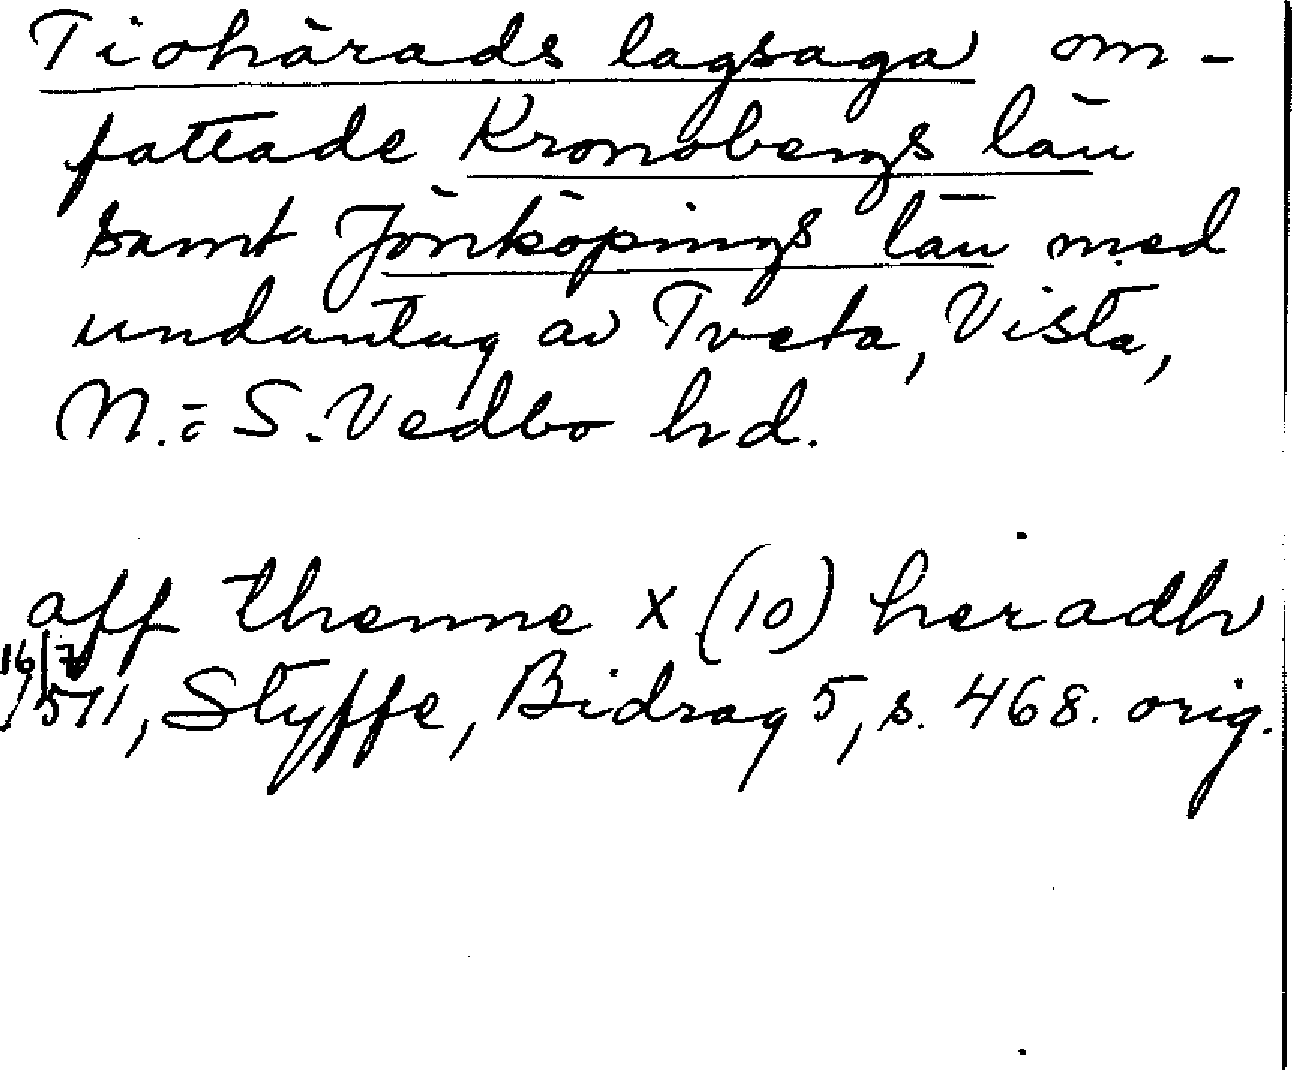 Tiohärads lagsaga om-
fattade Kronobergs län
samt Jönköpings län med
undantag av Tveta, Vista,
N. o S. Vedbo hd.
aff thenne x (10) heradh
16/7
1511, Styffe, Bidrag 5, s. 468. orig.